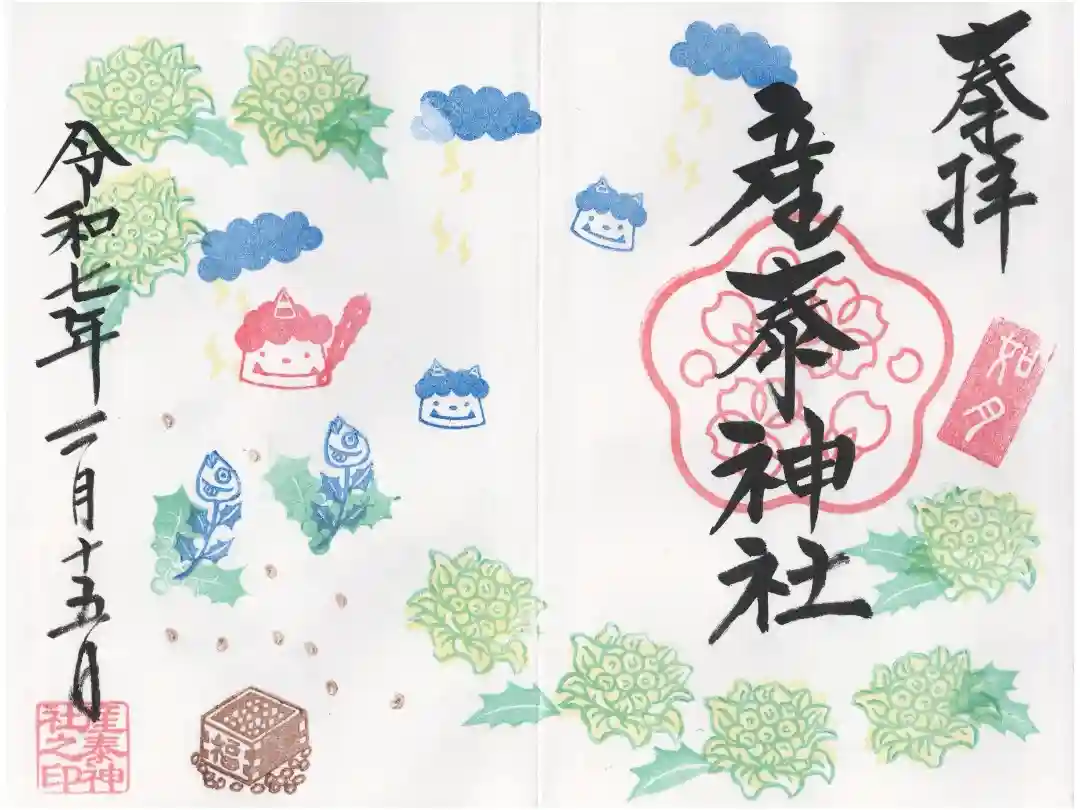 奉拝
如月
産泰神社
令和七年二月十五日
福
産泰神
社之印